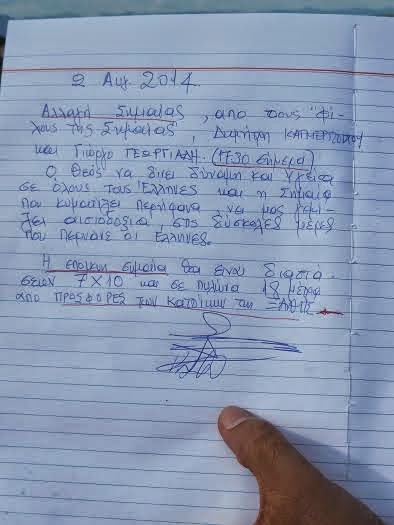 2 Αυγ. 2014.
Αλλαγή Σημαίας, από τους "φί-
λους της Σημαίας", Δημήτρη
και Γιώργο ΓΕΩΡΓΙΑΔΗ. (17:30 σήμερα)
Ο Θεός να δίνει δύναμη και υγεία
σε όλους τους Έλληνες και η Σημαία
που κυματίζει περήφανα να μας γεμί-
ζει αισιοδοξία, στις δύσκολες μέρες
που περνάνε οι Έλληνες.
Η επόμενη σημαία θα είναι διαστά-
σεων 7 Χ 10 και σε πυλώνα 18 μέτρα
από ΠΡΟΣΦΟΡΕΣ των κατοίκων της ΞΑΝΘΗΣ